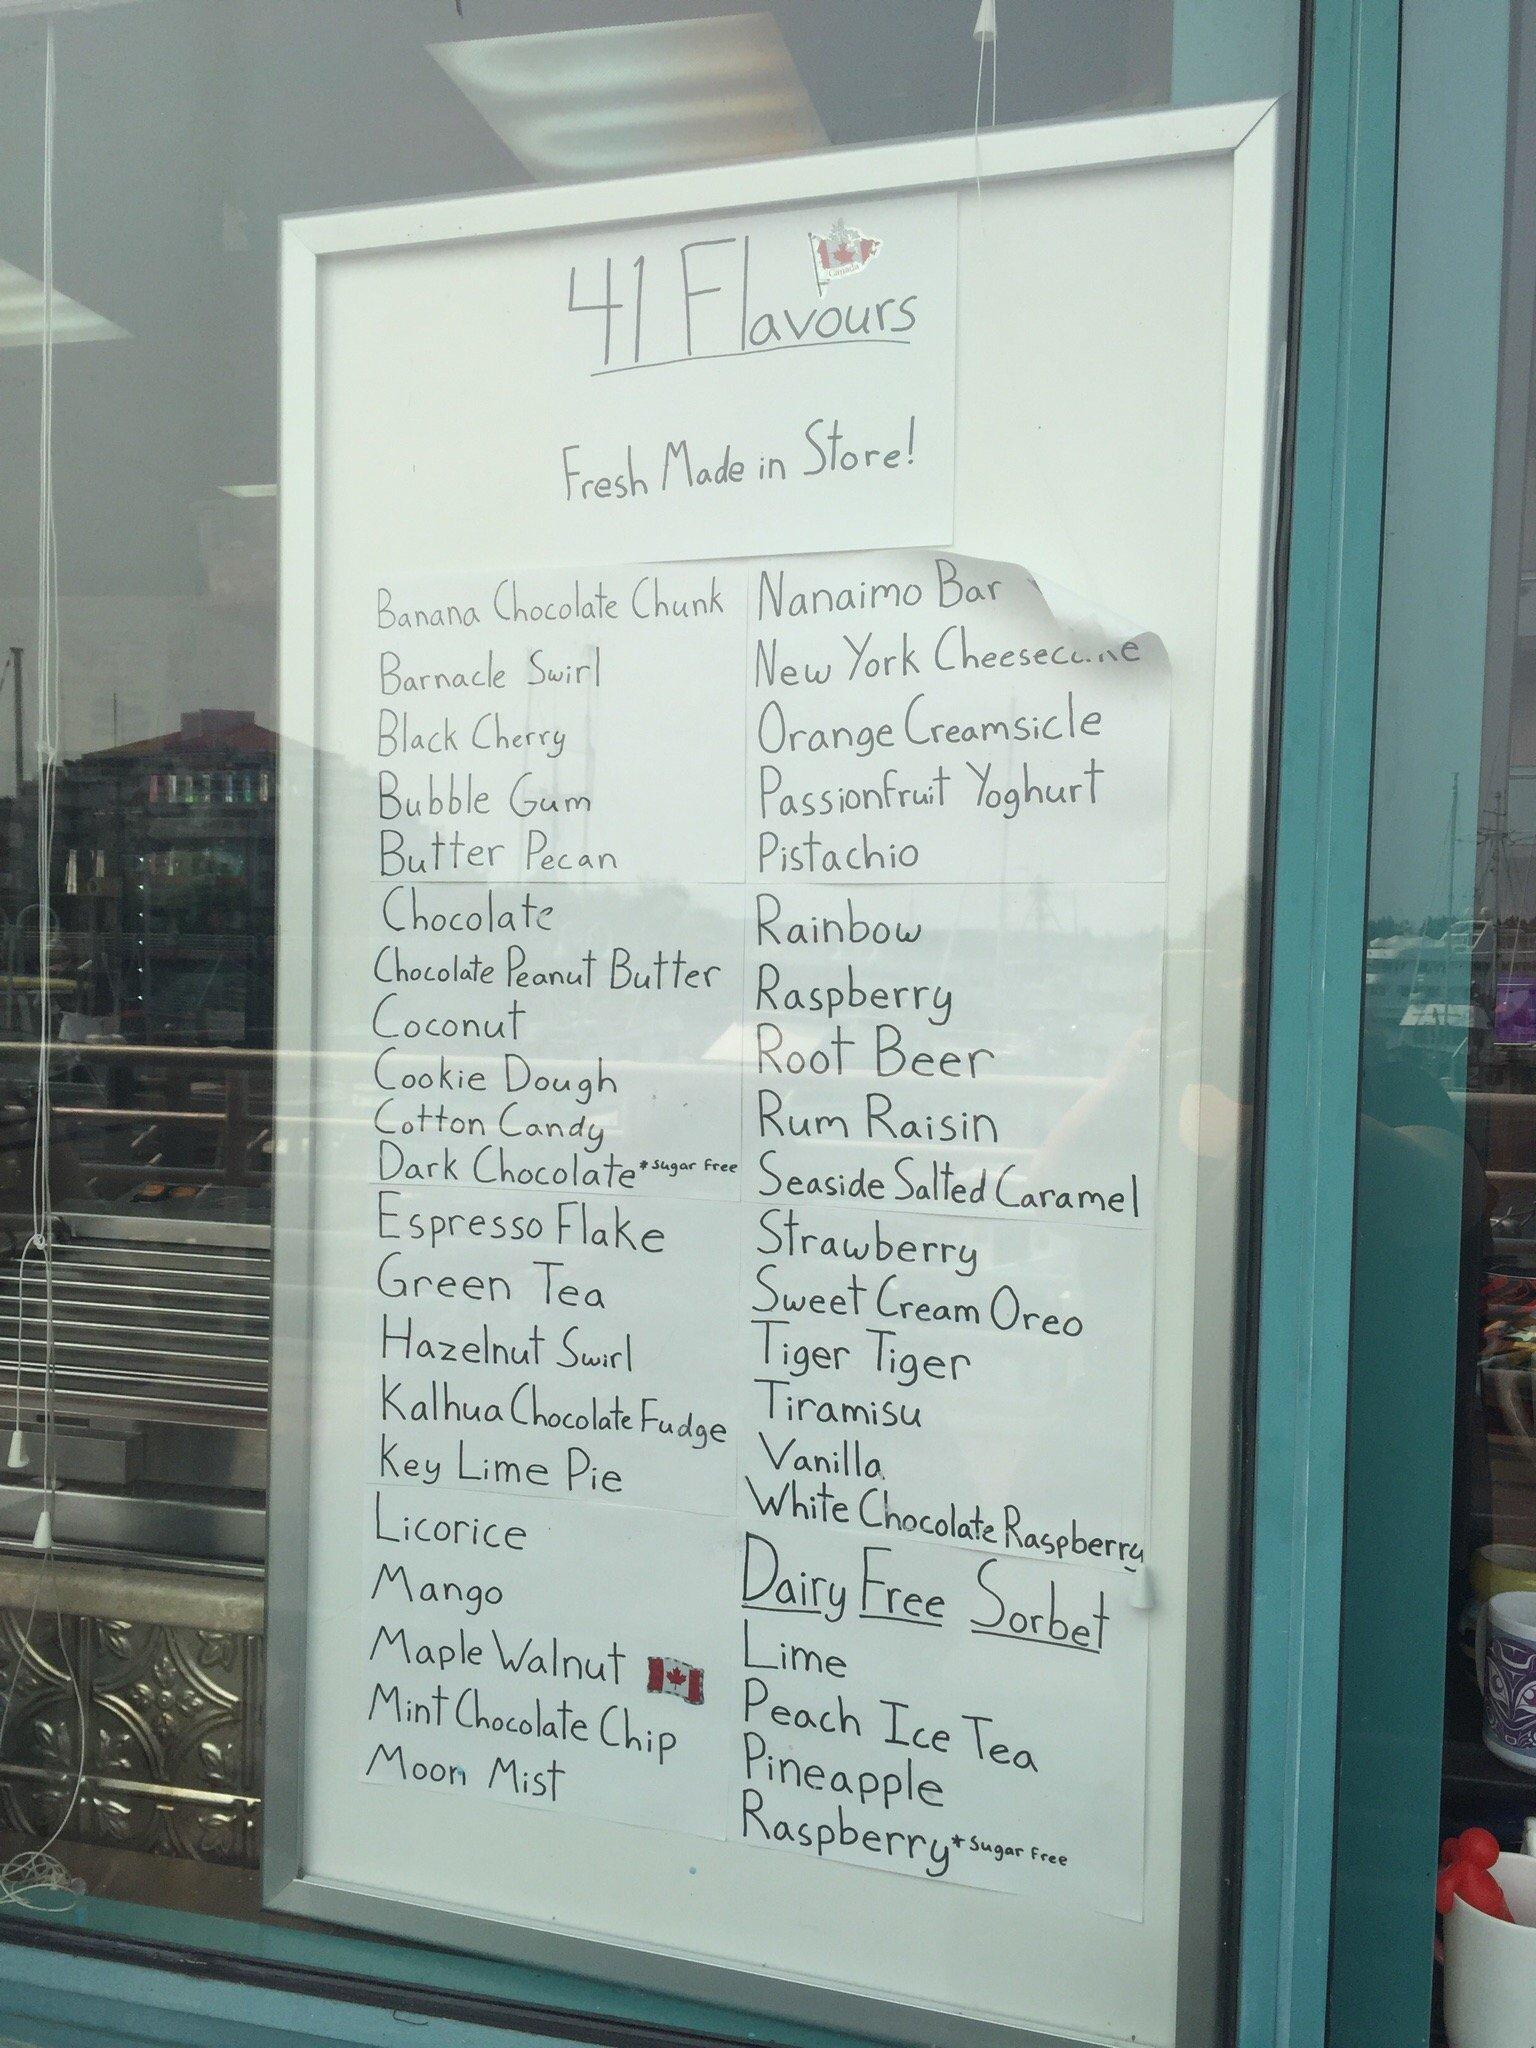 41 Flavours
Canada
Fresh Made in Store!
Banana Chocolate Chunk
Barnacle Swirl
Black Cherry
Bubble Gum
Butter Pecan
Chocolate
Chocolate Peanut Butter
Coconut
Cookie Dough
Cotton Candy
Dark Chocolate *sugar free
Espresso Flake
Green Tea
Hazelnut Swirl
Kalhua Chocolate Fudge
Key Lime Pie
Licorice
Mango
Maple Walnut
Mint Chocolate Chip
Moon Mist
Nanaimo Bar
New York Cheesecake
Orange Creamsicle
Passionfruit Yoghurt
Pistachio
Rainbow
Raspberry
Root Beer
Rum Raisin
Seaside Salted Caramel
Strawberry
Sweet Cream Oreo
Tiger Tiger
Tiramisu
Vanilla
White Chocolate Raspberry
Dairy Free Sorbet
Lime
Peach Ice Tea
Pineapple
Raspberry *sugar free